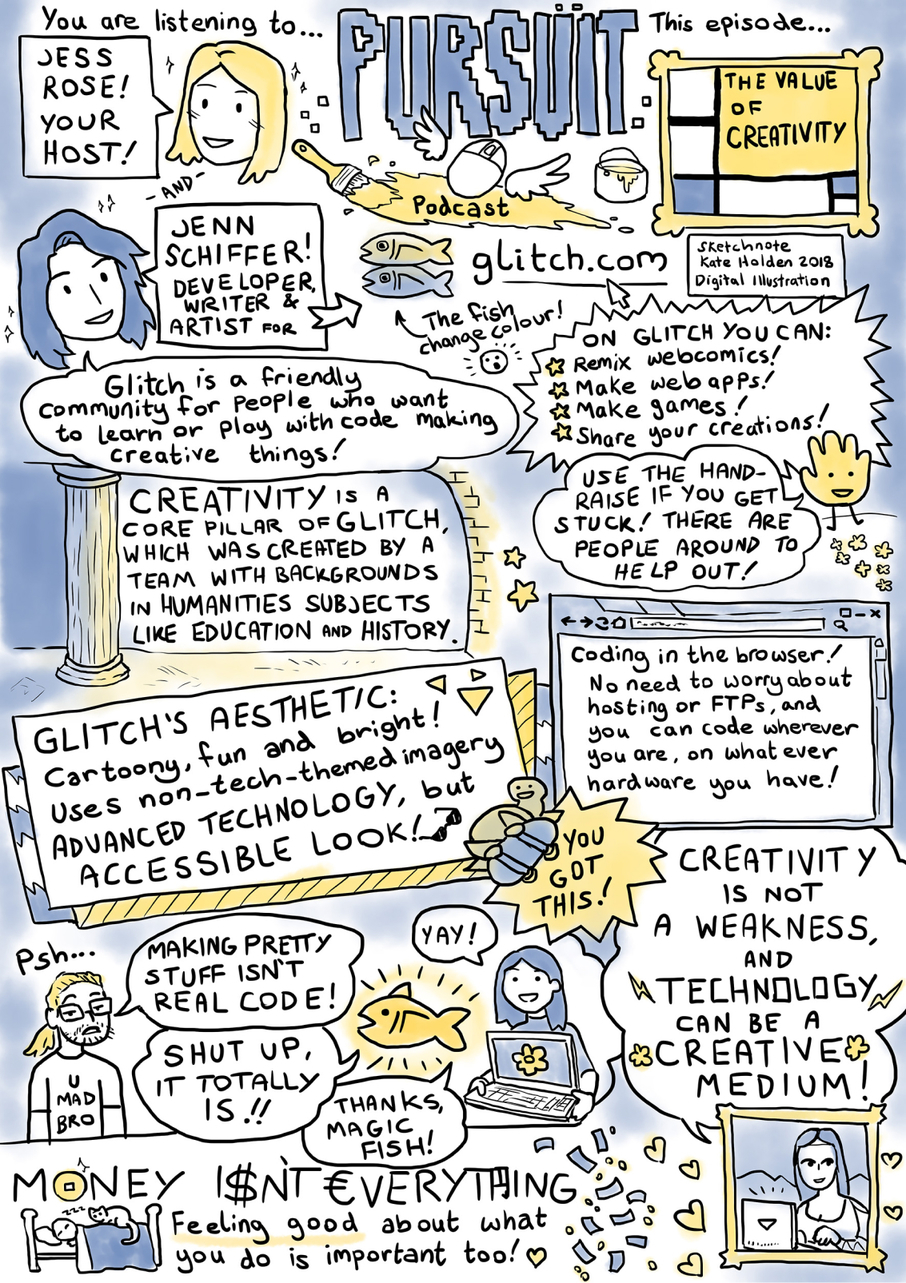 You are listening to...
PURSÜIT.
Podcast
This episode...
THE VALUE
OF
CREATIVITY
JESS
ROSE!
YOUR
HOST!
-AND-
JENN
SCHIFFER!
DEVELOPER,
WRITER &
ARTIST FOR
glitch.com
The fish
change colour!
Sketchnote
Kate Holden 2018
Digital Illustration
Glitch is a friendly
community for people who want
to learn or play with code making
creative things!
ON GLITCH YOU CAN:
Remix webcomics!
Make web apps!
Make games!
Share your creations!
USE THE HAND-
RAISE IF YOU GET
STUCK! THERE ARE
PEOPLE AROUND TO
HELP OUT!
CREATIVITY IS A
CORE PILLAR OF GLITCH,
WHICH WAS CREATED BY A
TEAM WITH BACKGROUNDS
IN HUMANITIES SUBJECTS
LIKE EDUCATION AND HISTORY.
Coding in the browser!
No need to worry about
hosting or FTPs, and
you can code wherever
you are, on whatever
hardware you have!
GLITCH'S AESTHETIC:
Cartoony, fun and bright!
Uses non-tech-themed imagery
ADVANCED TECHNOLOGY, but
ACCESSIBLE LOOK!
YOU
GOT
THIS!
CREATIVITY
IS NOT
A WEAKNESS,
AND
TECHNOLOGY
CAN BE A
CREATIVE
MEDIUM!
Psh...
MAKING PRETTY
STUFF ISN'T
REAL CODE!
U
MAD
BRO
SHUT UP,
IT TOTALLY
IS!!
YAY!
THANKS,
MAGIC
FISH!
MONEY I$N'T €VERYTHING
Feeling good about what
you do is important too!